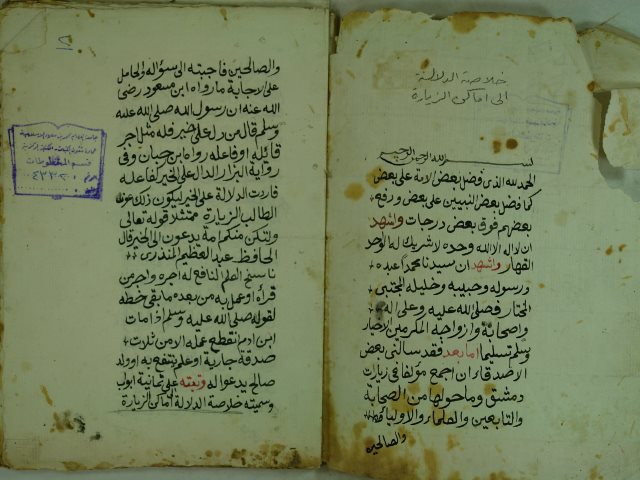 خلاصة الدلالة
الى اماكن الزيارة
بسم الله الرحمن الرحيم
الحمد لله الذى فضل بعض الامة على بعض
كما فضل بعض النبيين على بعض ورفع
بعضهم فوق بعض درجات واشهد
ان لااله الا الله وحده لاشريك له الوحد
القهار واشهد ان سيدنا محمدا عبده
ورسوله وحبيبه وخليله المجتبى
المختار فصلى الله عليه وعلى اله
واصحابه وازواجه المكرمين الاخيار
وسلم تسليما اما بعد فقد سالنى بعض
الاصدقاء ان اجمع مؤلفا فى زيارات
دمشق وما حولها من الصحابة
والتابعين والعلماء والاولياء
والصالحين
١٨
والصالحين فاجبته الى سؤاله والحامل
على الاجابة مارواه ابن مسعود رضى
الله عنه ان رسول الله صلى الله عليه
وسلم قال من دل على خير فله مثل اجر
قائله او فاعله رواه ابن حبان وفى
رواية البزار الدال على الخير كفاعله
فاردت الدلالة على الخير ليكون ذلك
الطالب الزيارة ممتثلا قوله تعالى
ولتكن منكم امة يدعون الى الخير قال
الحافظ عبد العظيم المنذرى
ناسخ العلم النافع له اجره واجر من
قرأه او عمل به من بعده مابقى خطه
لقوله صلى الله عليه وسلم اذا مات
ابن ادم انقطع عمله الا من ثلاث
صدقة جارية او علم ينتفع به او ولد
صالح يدعو له ورتبته على ثمانية ابواب
وسميته خلاصة الدلالة اماكن الزيارة
قسم المخطوطات